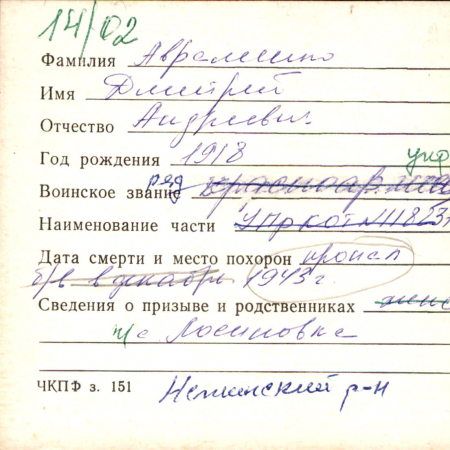 14/02
Фамилия Авраменко
Имя Дмитрий
Отчество Андреевич
Год рождения 1918
Воинское звание ряд красноармеец
Наименование части
Дата смерти и место похорон пропал
б/в в декабре 1943 г.
Сведения о призыве и родственниках
п/с Лосиновка
ЧКПФ з. 151 Нежинский р-н